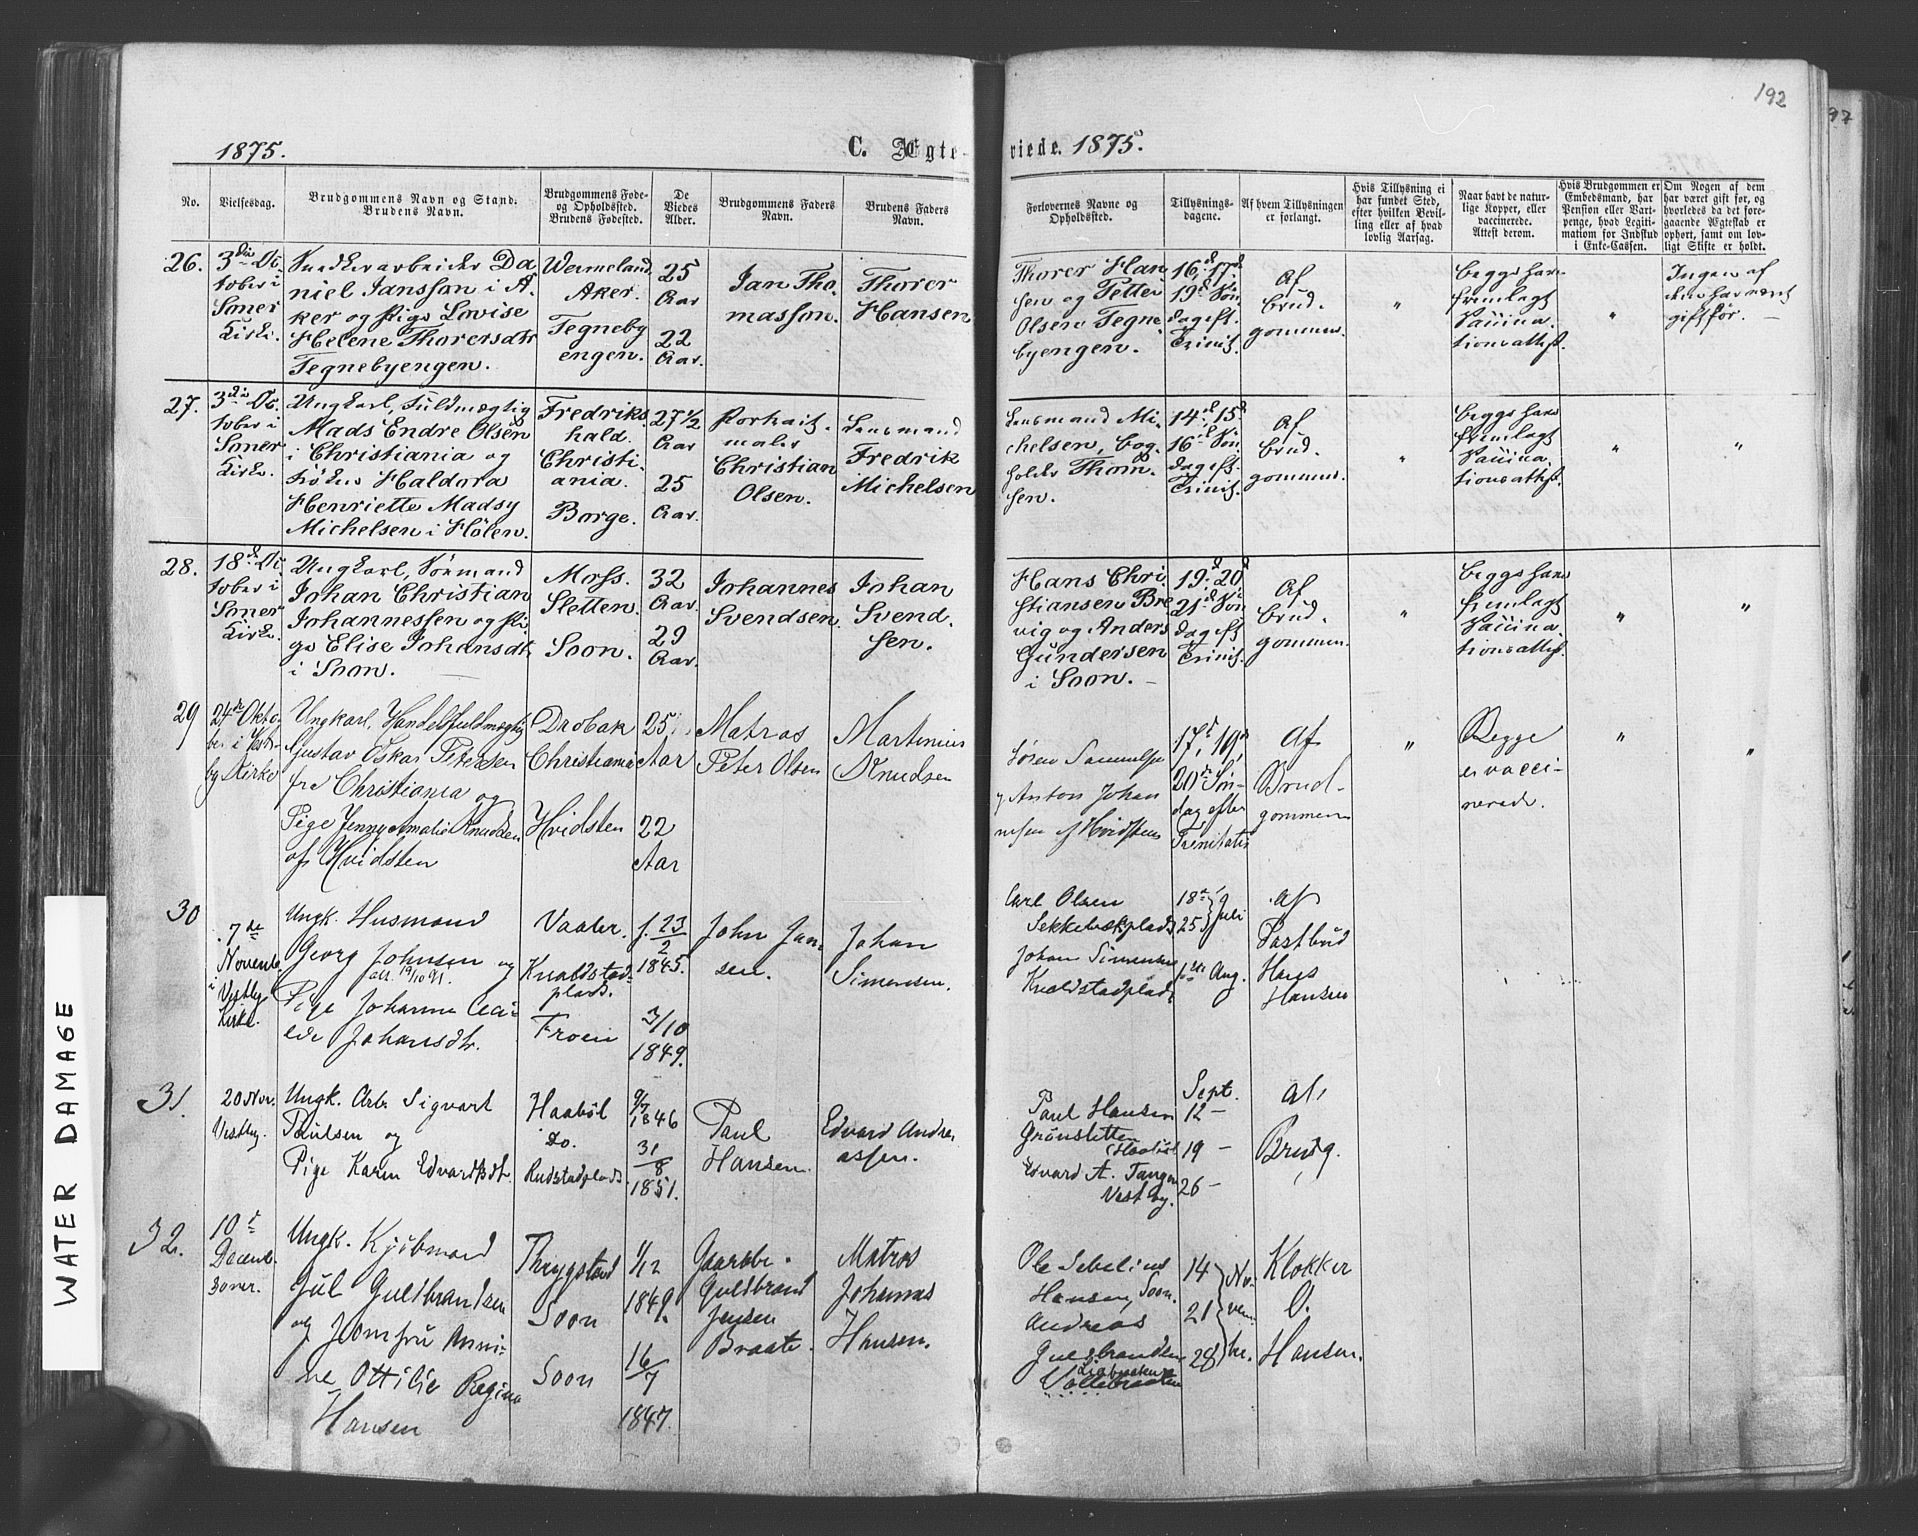 192
97
1875.
C. Ægte-
viede. 1875.
No.
Vielsesdag.
Brudgommens Navn og Stand.
Brudens Navn.
Brudgommens Føde-
og Opholdssted.
Brudens Fødested.
De
Viedes
Alder.
Brudgommens Faders
Navn.
Brudens Faders
Navn.
Forlovernes Navne og
Opholdssted.
Tillysnings-
dagene.
Af hvem Tillysningen
er forlangt.
Hvis Tillysning ei
har fundet Sted,
efter hvilken Bevil-
ling eller af hvad
lovlig Aarsag.
Naar havt de natur-
lige Kopper, eller
vaccinerede.
Attest derom.
Hvis Brudgommen er
Embedsmand, har
Pension eller Vart-
penge, hvad Legiti-
mation for Indskud
i Enke-Cassen.
Om Nogen af dem
har været gift før, og
hvorledes da det fore-
gaaende Ægteskab er
ophørt, samt om lov-
ligt Skifte er holdt.
26.
3die Oc.
tober i
Smør
Kirke.
Snedkerarbeider Da
niel Jansson i A.
ker og Pige Lovise
Helene Thorersdtr
Tegnebyengen.
Wermeland
Aker.
Tegneby
engen.
25
Aar
22
Aar.
Jan Tho.
masson.
Thorer
Hansen
Thorer Han
sen og Petter
Olsen Tegne
byengen.
16, 17d
19d Søn
dag eft.
Trinit.
Af
brud.
gommen.
"
begge have
fremlagt
Vaccina.
tionsattest.
"
Ingen af
dem har været
gift før. —
27.
3die Oc.
tober i
Smør
Kirke.
Ungkarl, Fuldmægtig
Mads Endre Olsen
i Christiania og
Frøken Haldora
Henriette Madsy
Michelsen i Hølen.
Fredriks
hald.
Christi.
ania.
Borge.
27 1/2
Aar
25
Aar.
Portrait.
maler
Christian
Olsen.
Lensmand
Fredrik
Michelsen
Lensmand Mi.
chelsen, bog
holder Thom.
sen.
14, 15d
16d Søn
dag eft.
Trinit.
Af
brud.
gommen.
"
begge have
fremlagt
Vaccina.
tionsattest.
"
"
28.
18d Oc.
tober i
Smør
Kirke.
Ungkarl, Sømand
Johan Christian
Johannessen og Pi.
ge Elise Johansdt.
i Soon.
Moss.
Sletten.
Soon.
32
Aar.
29
Aar.
Johannes
Svendsen.
Johan
Svend
sen.
Hans Chri.
stiansen Bre
vig og Anders
Gundersen
i Soon. —
19, 20d
21d Søn
dag eft
Trinit.
Af
brud.
gommen.
"
begge have
fremlagt
Vaccina.
tionsattest.
"
"
29
24de Okto
ber i Vest-
by Kirke
Ungkarl, Handelsfuldmægtig
Gustav Oskar Petersen
fra Christiania og
Pige Jenny Amalie Knudsen
af Hvidsten
Drøbak
Christiania
Hvidsten
25
Aar
22
Aar
Matros
Peter Olsen
Martinius
Knudsen
Søren Samuelsen
og Anton Johan
nesen af Hvidsten
17d, 19d
20de Søn-
dag efter
Trinitatis
Af
Brud-
gommen
"
Begge
er vacci-
nerede.
"
"
30
7de
Novemb.
i Vestby
Kirke.
Ungk. Husmand
Georg Johnsen og
att. 19/10 91.
Pige Johanne Ceci-
lie Johansdtr.
Vaaler.
Knaldstad
plads.
Froen
f. 23/2
1845.
3/10
1849.
John Jan
sen.
Johan
Simensen.
Carl Olsen
Sekkebækplads
Johan Simensen
Knaldstadplads
18de Juli
25
1ste Aug.
Af
Postbud
Hans
Hansen
31.
20 Nov.
Vestby.
Ungk. Arb. Sigvart
Paulsen og
Pige Karen Edvardsdt.
Haabøl
Do.
Rudstadplads
9/7
1846
31/8
1851.
Paul
Hansen.
Edvard Andre
assen.
Paul Hansen
Grønsletten
Haabøl
Edvard A. Tangen
Vestby.
Sept.
12 —
19 —
26 —
Af
Brudg.
32.
10d
Decemb.
Soner.
Ungk. Kjøbmand
Jul Guldbrandsen
og Jomfru Anni-
ne Ottilie Regine
Hansen
Thrygstad
Soon
Soon
1/12
1849.
16/7
1847.
Gaardbr.
Guldbrand
Jensen
Braate.
Matros
Johannes
Hansen.
Ole Sibelius
Hansen, Soon.
Andreas
Guldbrandsen
14
21
28
No.
vem
br.
Klokker
O.
Hansen.
WATER DAMAGE